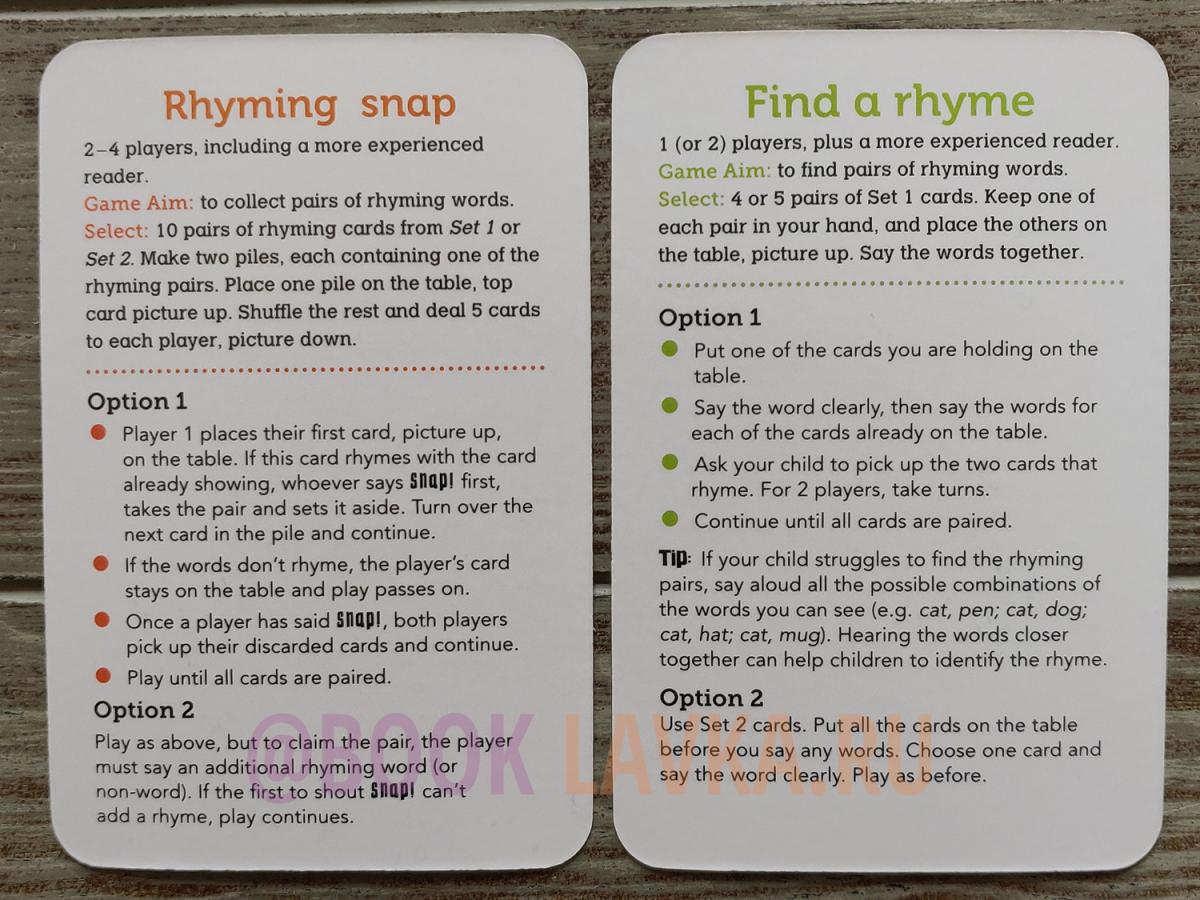 Rhyming snap
2–4 players, including a more experienced
reader.
Game Aim: to collect pairs of rhyming words.
Select: 10 pairs of rhyming cards from Set 1 or
Set 2. Make two piles, each containing one of the
rhyming pairs. Place one pile on the table, top
card picture up. Shuffle the rest and deal 5 cards
to each player, picture down.
Option 1
Player 1 places their first card, picture up,
on the table. If this card rhymes with the card
already showing, whoever says snap! first,
takes the pair and sets it aside. Turn over the
next card in the pile and continue.
If the words don't rhyme, the player's card
stays on the table and play passes on.
Once a player has said snap!, both players
pick up their discarded cards and continue.
Play until all cards are paired.
Option 2
Play as above, but to claim the pair, the player
must say an additional rhyming word (or
non-word). If the first to shout snap! can't
add a rhyme, play continues.
Find a rhyme
1 (or 2) players, plus a more experienced reader.
Game Aim: to find pairs of rhyming words.
Select: 4 or 5 pairs of Set 1 cards. Keep one of
each pair in your hand, and place the others on
the table, picture up. Say the words together.
Option 1
Put one of the cards you are holding on the
table.
Say the word clearly, then say the words for
each of the cards already on the table.
Ask your child to pick up the two cards that
rhyme. For 2 players, take turns.
Continue until all cards are paired.
Tip: If your child struggles to find the rhyming
pairs, say aloud all the possible combinations of
the words you can see (e.g. cat, pen; cat, dog;
cat, hat; cat, mug). Hearing the words closer
together can help children to identify the rhyme.
Option 2
Use Set 2 cards. Put all the cards on the table
before you say any words. Choose one card and
say the word clearly. Play as before.
@BOOK LAVKA.RU